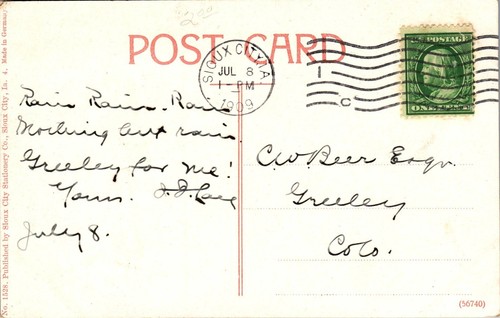 POST CARD
SIOUX CITY, IA.
JUL 8
1-PM
1909
1
C
POSTAGE
ONE CENT
Rain Rain. Rain
Nothing but rain
Greeley for me!
Yours.
July 8.
C W Beer Esq.
Greeley
Colo.
No. 1528. Published by Sioux City Stationery Co., Sioux City, Ia. 4. Made in Germany.
(56740)